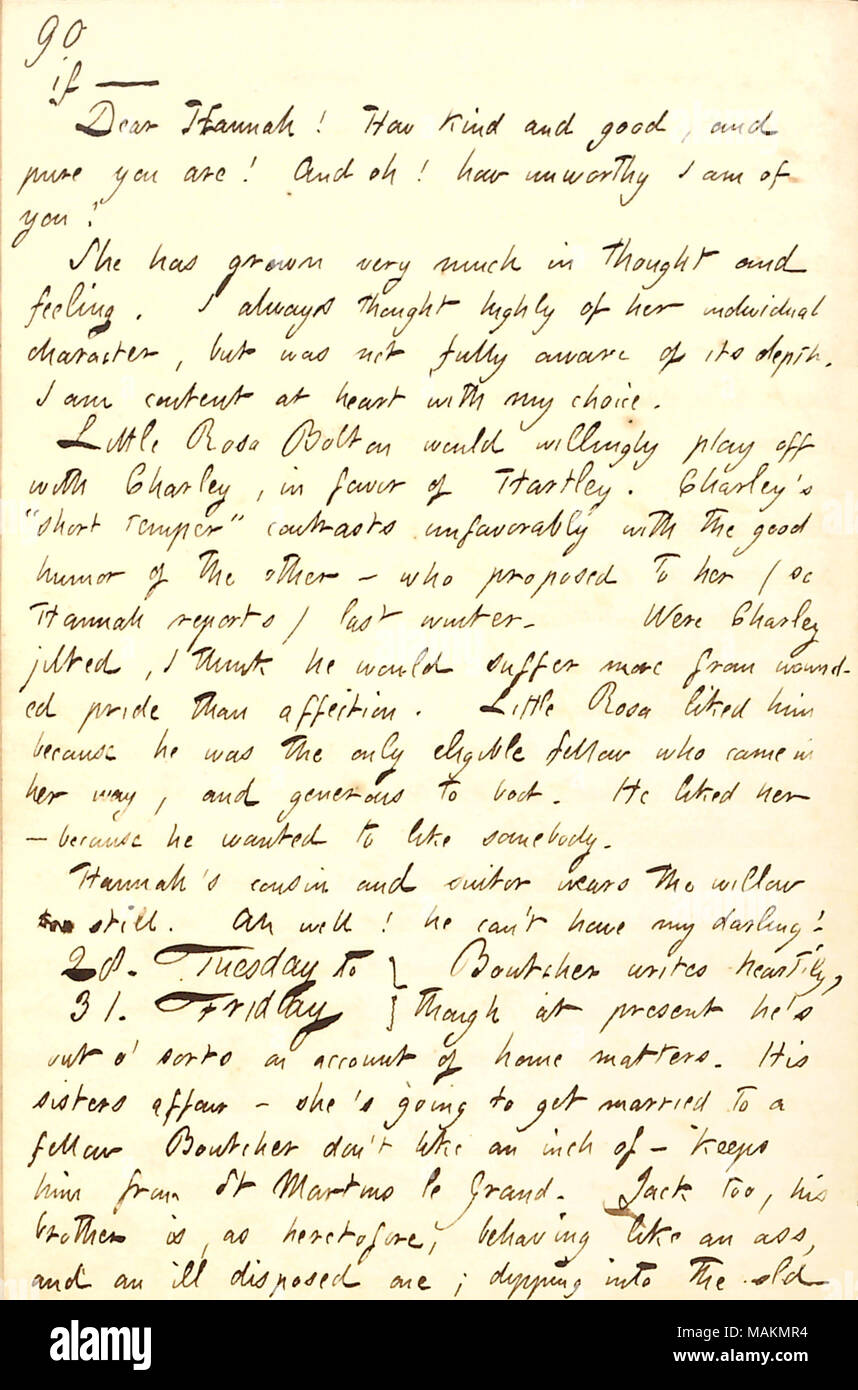 90
if —
Dear Hannah! How kind and good, and
pure you are! And oh! how unworthy I am of
you!
She has grown very much in thought and
feeling. I always thought highly of her individual
character, but was not fully aware of its depth.
I am content at heart with my choice.
Little Rosa Bolton would willingly play off
with Charley, in favor of Hartley. Charley's
"short temper" contrasts unfavorably with the good
humor of the other — who proposed to her / so
Hannah reports / last winter. Were Charley
jilted, I think he would suffer more from wound-
ed pride than affection. Little Rosa liked him
because he was the only eligible fellow who came in
her way, and generous to boot. He liked her
— because he wanted to like somebody.
Hannah's cousin and suitor wears the willow
still. Ah well! he can't have my darling!
28. Tuesday to } Boutcher writes heartily,
31. Friday } though at present he's
out o' sorts on account of home matters. His
sisters affair — she's going to get married to a
fellow Boutcher don't like an inch of — keeps
him from St Martins le Grand. Jack too, his
brother is, as heretofore, behaving like an ass,
and an ill disposed one; dipping into the old
alamy
Image ID: MAKMR4
www.alamy.com